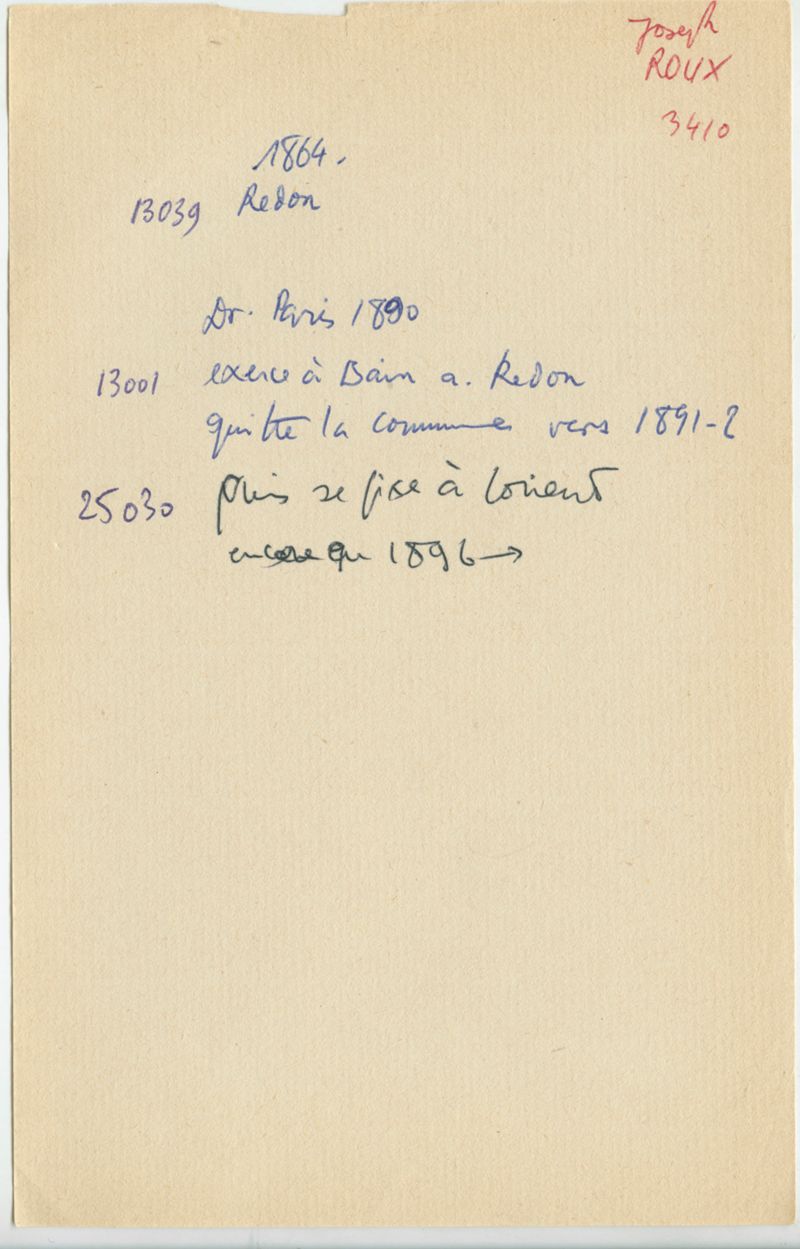 Joseph
ROUX
3410
1864.
13039 Redon
Dr. Paris 1890
13001 exerce à Bain a. Redon
quitte la commune vers 1891-2
25030 puis se fixe à Lorient
encore en 1896 →